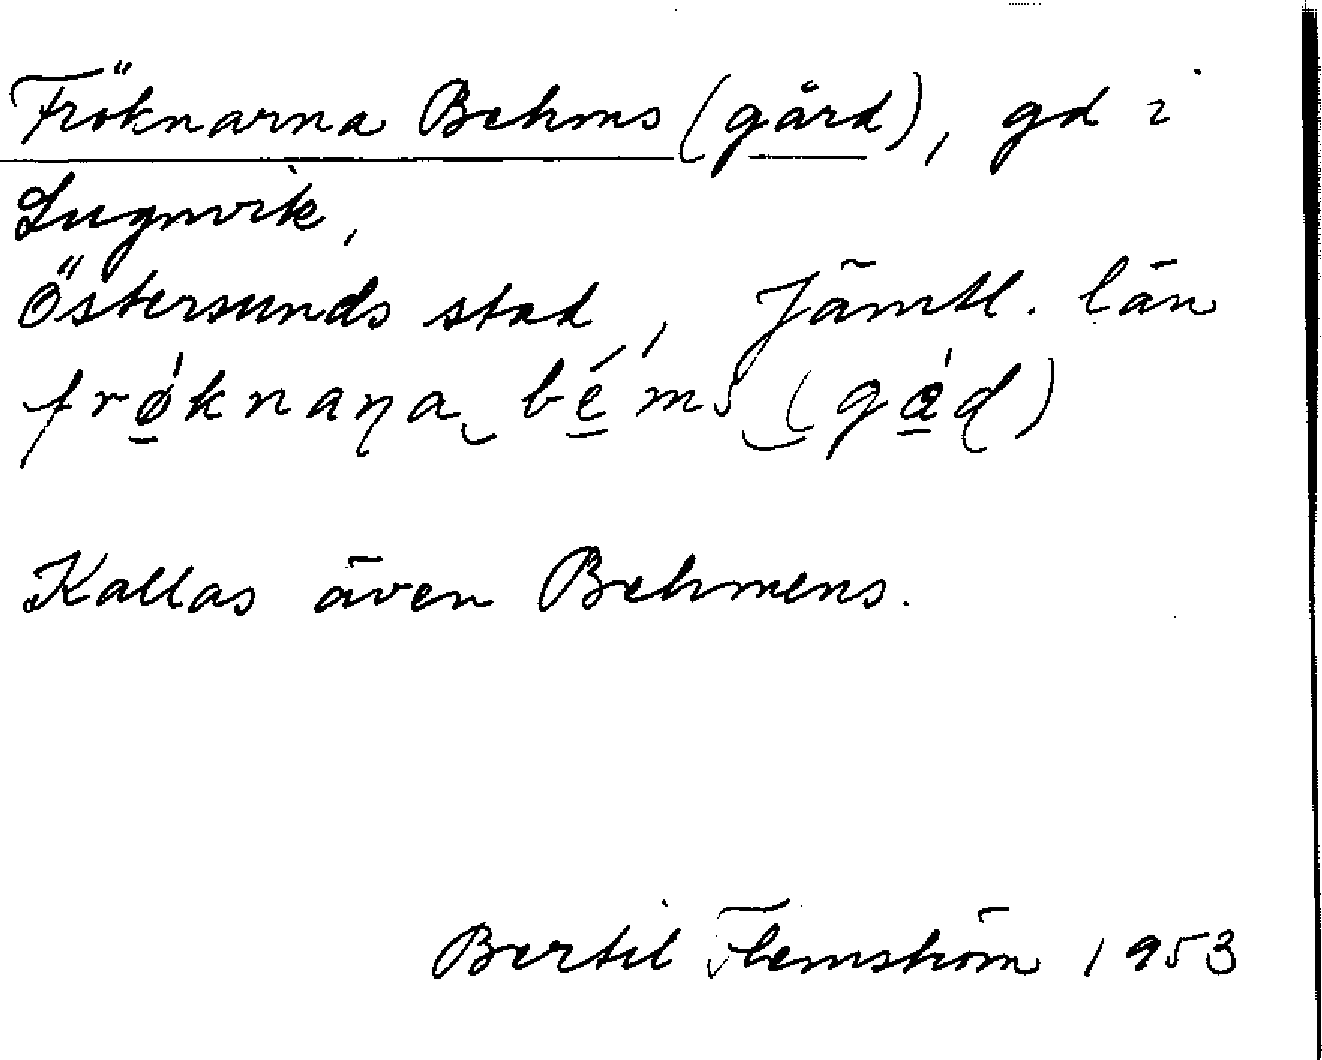 Fröknarna Behms (gård), gd i
Lugnvik,
Östersunds stad, Jämtl. län
frø̀knaɳa béms (gád)
Kallas även Behmens.
Bertil Flemström 1953